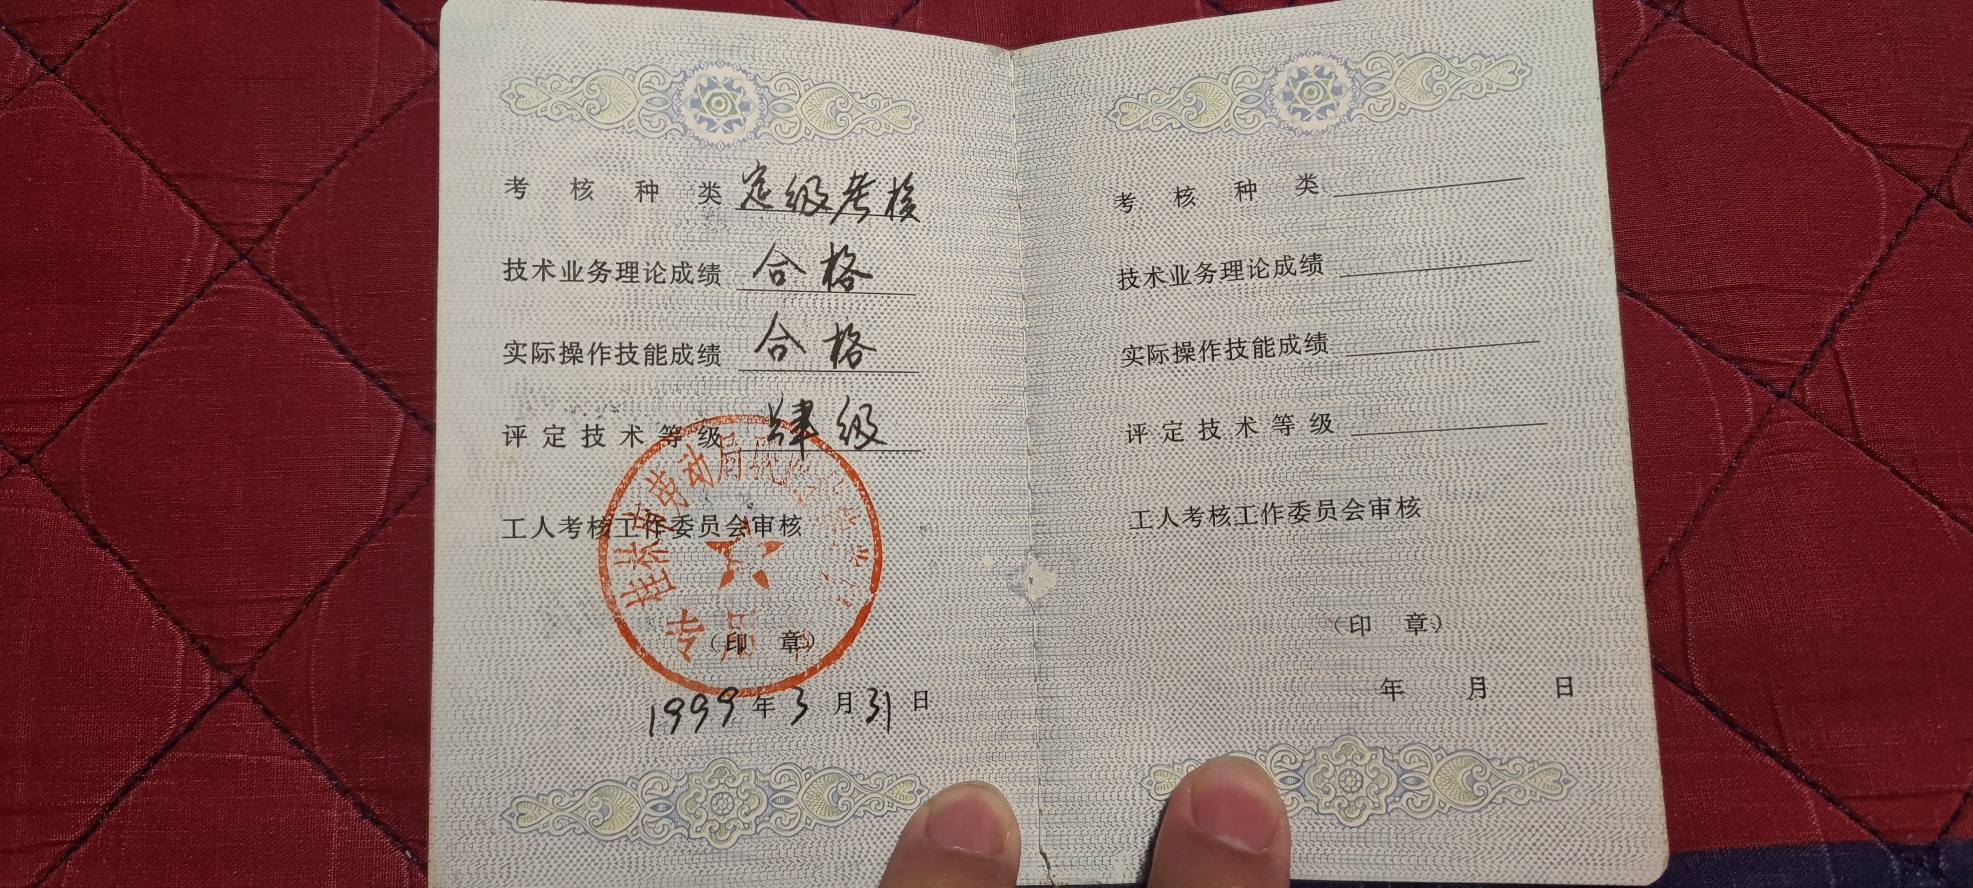 考核种类 定级考核
技术业务理论成绩 合格
实际操作技能成绩 合格
评定技术等级 肆级
工人考核工作委员会审核
桂林市劳动局
专用章
（印 章）
1999年3月31日
考核种类
技术业务理论成绩
实际操作技能成绩
评定技术等级
工人考核工作委员会审核
（印 章）
年 月 日